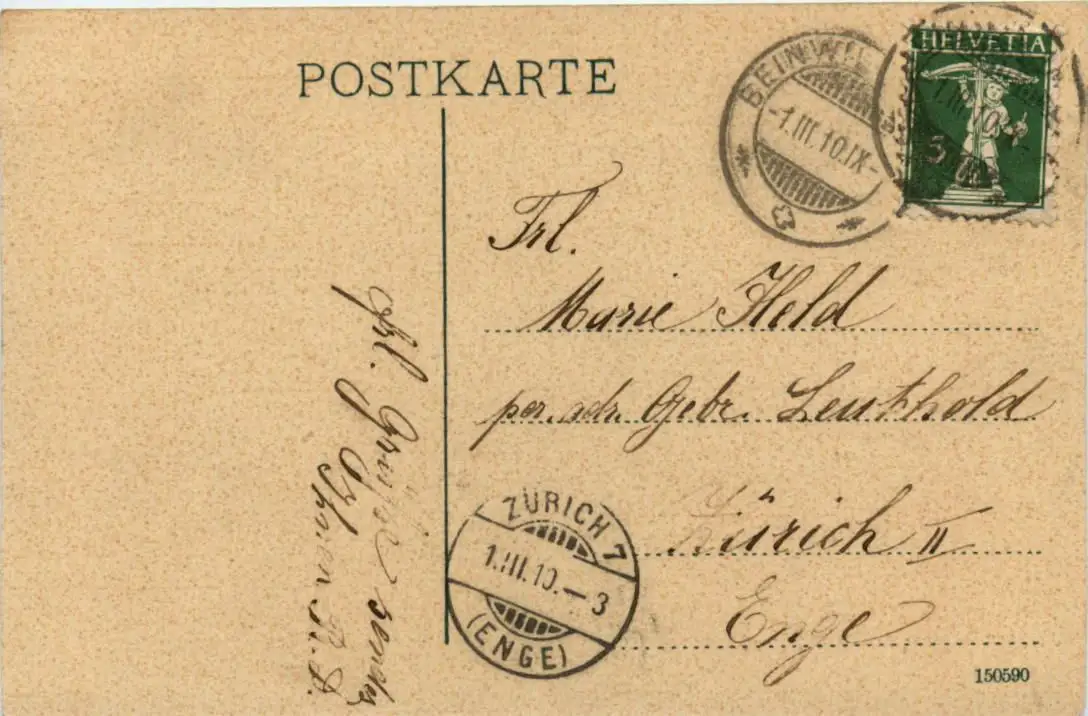 POSTKARTE
HELVETIA
5
BEINWIL
-1.III.10.IX-
1.III.10
Frl.
Marie Held
per. adr. Gebr. Leuthold
Zürich II
Enge
Frl. Grüße sendet
ZÜRICH 7
1.III.10.–3
(ENGE)
150590